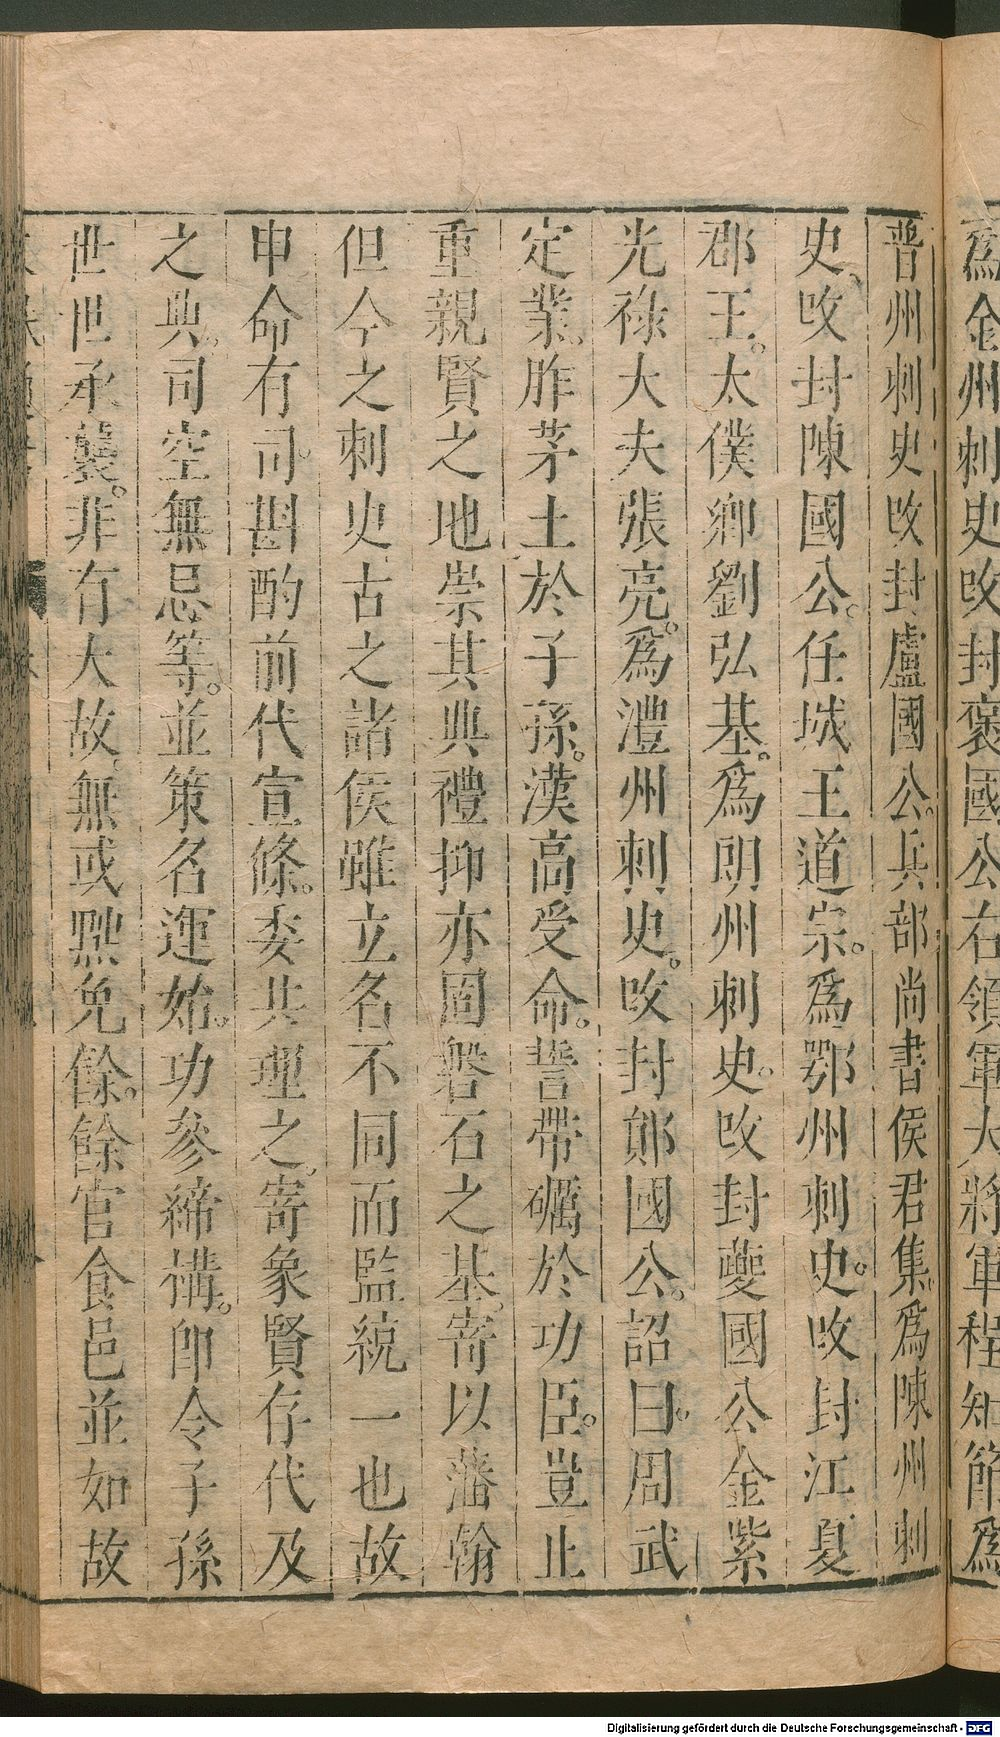 爲金州刺史攺封褒國公右領軍大將軍程知節爲
晋州刺史攺封盧國公。兵部尚書侯君集爲陳州刺
史、攺封陳國公。任城王道宗。爲鄂州刺史。攺封江夏
郡王。太僕卿劉弘基。爲朗州刺史。攺封夔國公金紫
光祿大夫張亮。爲澧州刺史。攺封鄖國公。詔曰。周武
定業。胙茅土於子孫。漢高受命。誓帶礪於功臣。豈止
重親賢之地崇其典禮抑亦固磐石之基。寄以藩翰
但今之刺史古之諸侯雖立名不同而監統一也故
申命有司。斟酌前代宣條。委共理之。寄象賢存代及
之典。司空無忌等。並策名運始。功參締構。卽令子孫
世世承襲。非有大故無或黜免餘。餘官食邑並如故
Digitalisierung gefördert durch die Deutsche Forschungsgemeinschaft - DFG